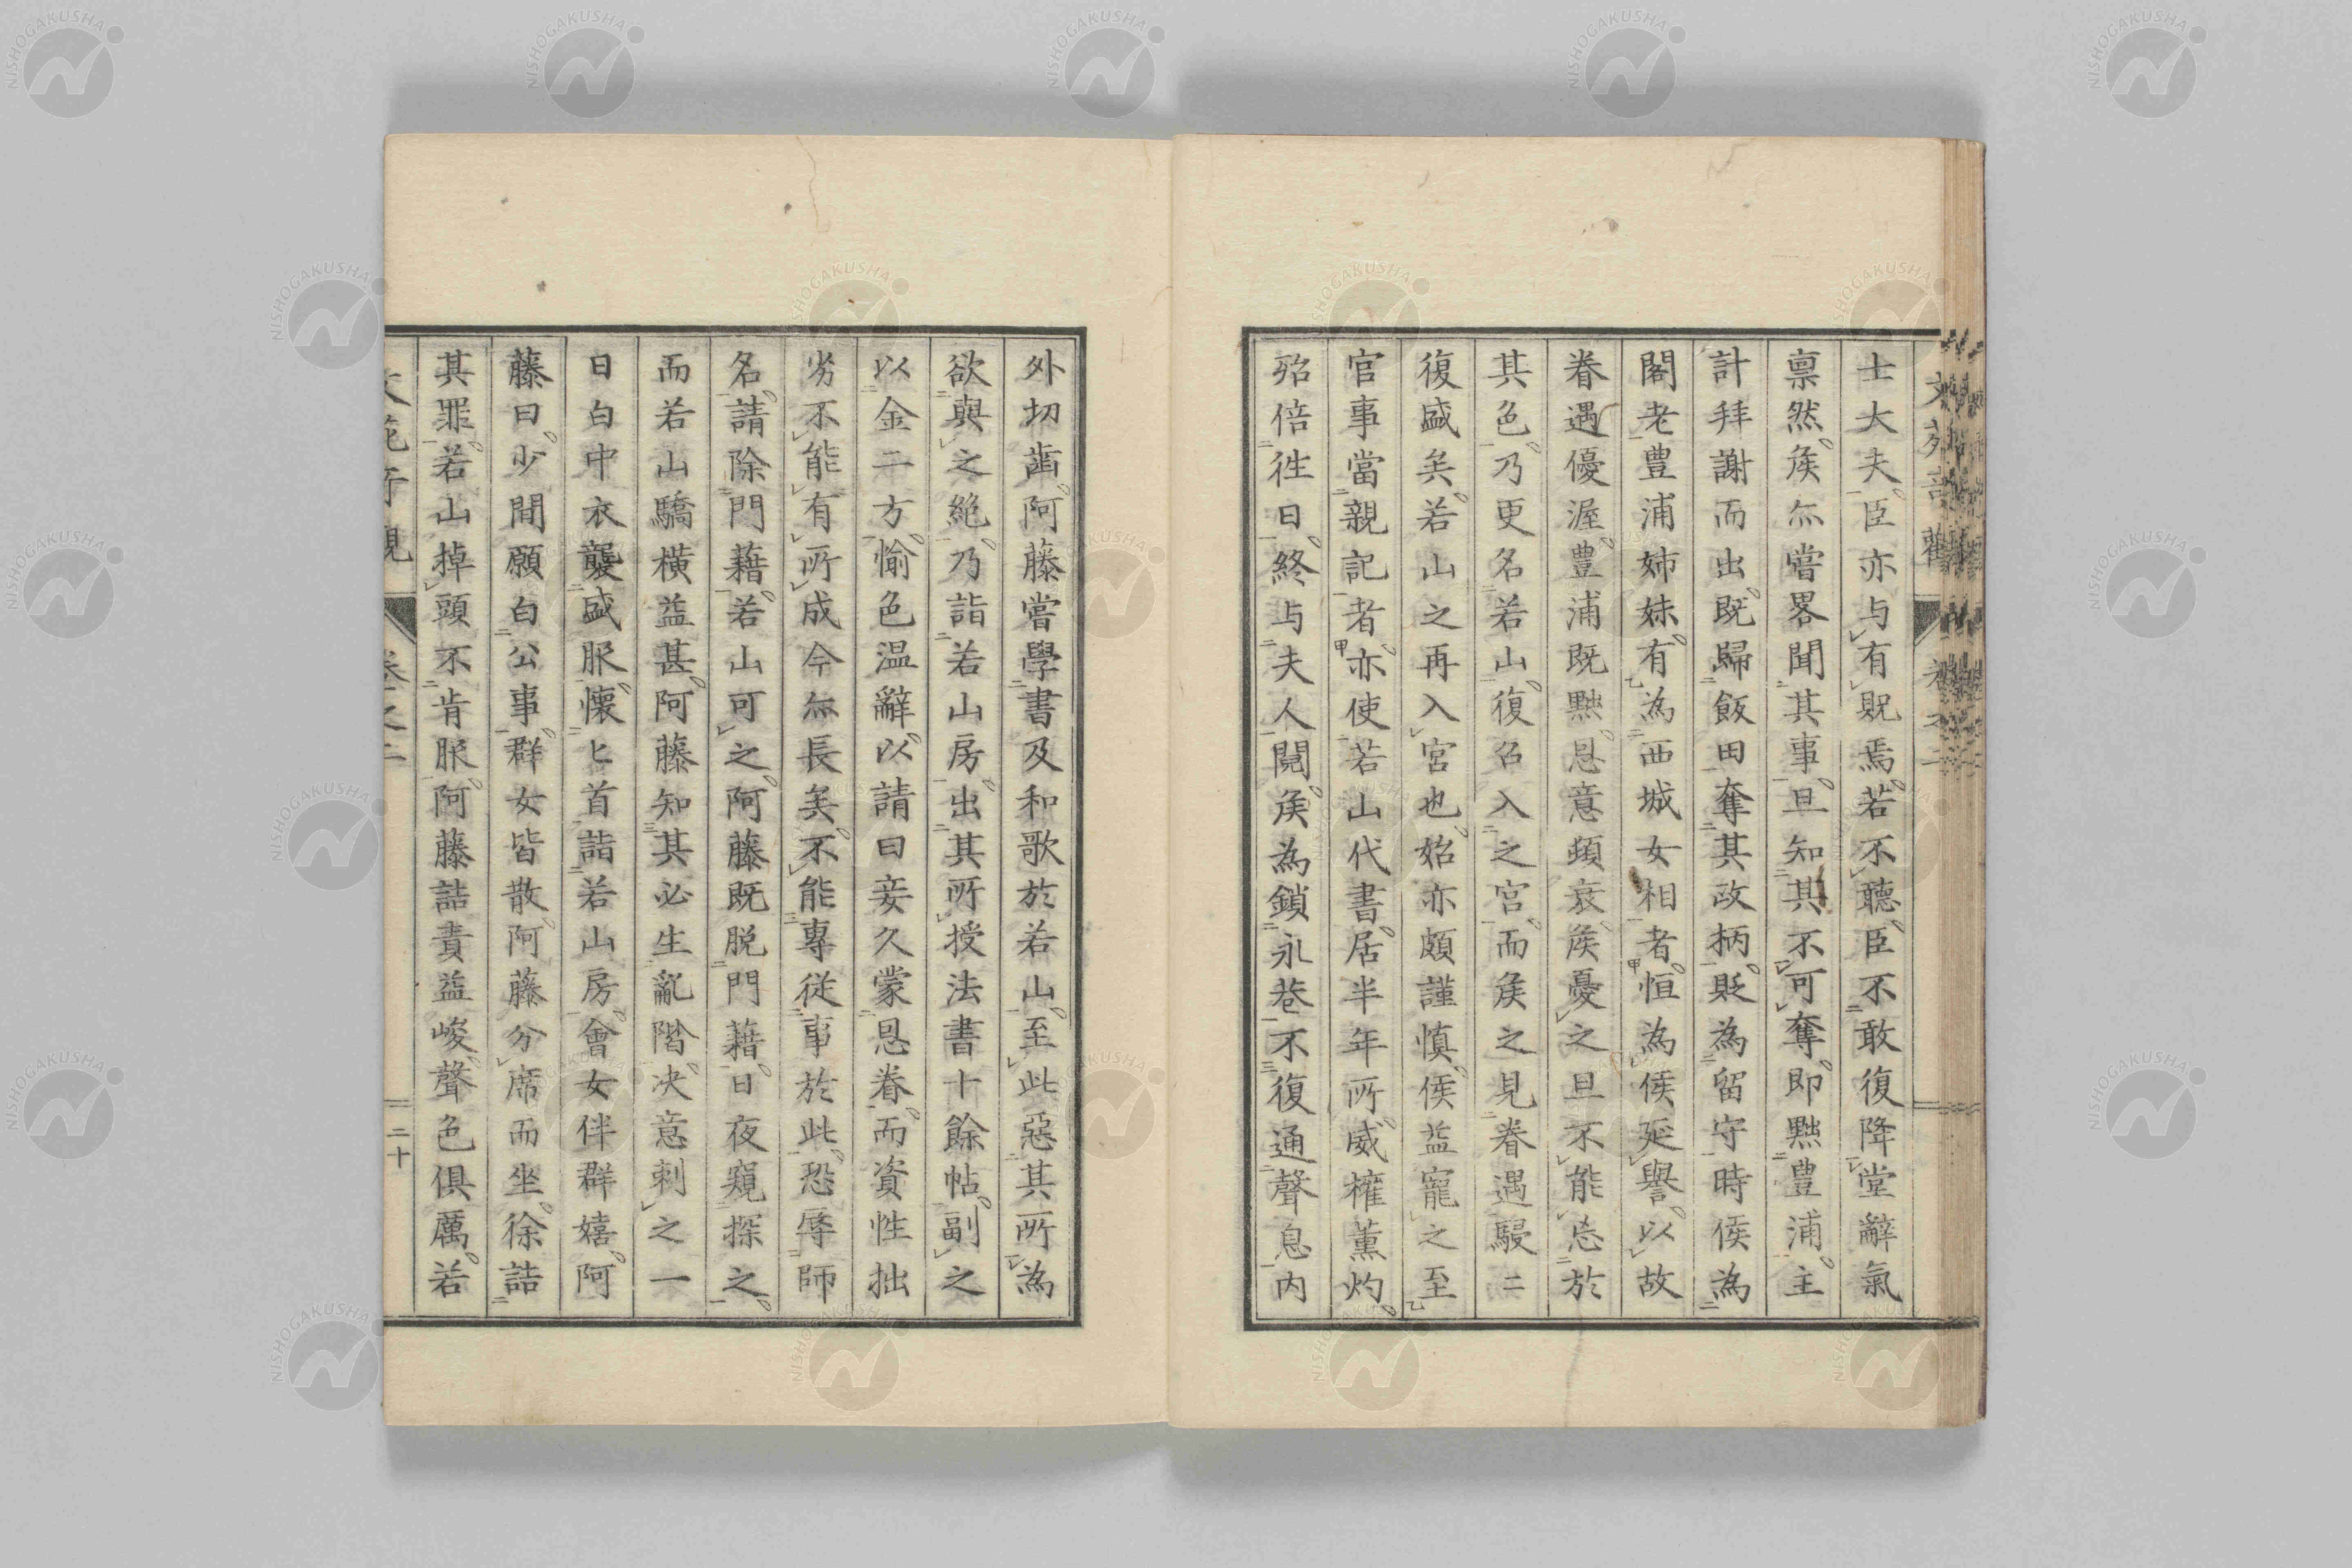 士大夫臣亦与有貺焉若不聽臣不敢復降堂辭氣
禀然矦尒嘗畧聞其事旦知其不可奪即黜豊浦主
計拜謝而出既歸飯田奪其政柄貶為留守時矦為
閣老豊浦姉妹有為西城女相者恒為矦延譽以故
眷遇優渥豊浦既黜恩意頗衰矦憂之旦不能忘於
其色乃更名若山復召入之宮而矦之見眷遇騣二
復盛矣若山之再入宮也始亦頗謹慎矦益寵之至
官事當親記者亦使若山代書居半年所威権薫灼
殆倍徃日終与夫人鬩矦為鎖永巷不復通聲息内
外切齒阿藤嘗學書及和歌於若山至此惡其所為
欲與之絶乃詣若山房出其所授法書十餘帖副之
以金二方愉色温辭以請曰妾久蒙恩眷而資性拙
劣不能有所成今尒長矣不能專従事於此恐辱師
名請除門藉若山可之阿藤既脱門藉日夜窺探之
而若山驕横益甚阿藤知其必生亂階决意刺之一
日白中衣襲盛服懷匕首詣若山房會女伴群嬉阿
藤曰少間願白公事群女皆散阿藤分席而坐徐詰
其罪若山掉頭不肯服阿藤詰責益峻聲色倶厲若
二十